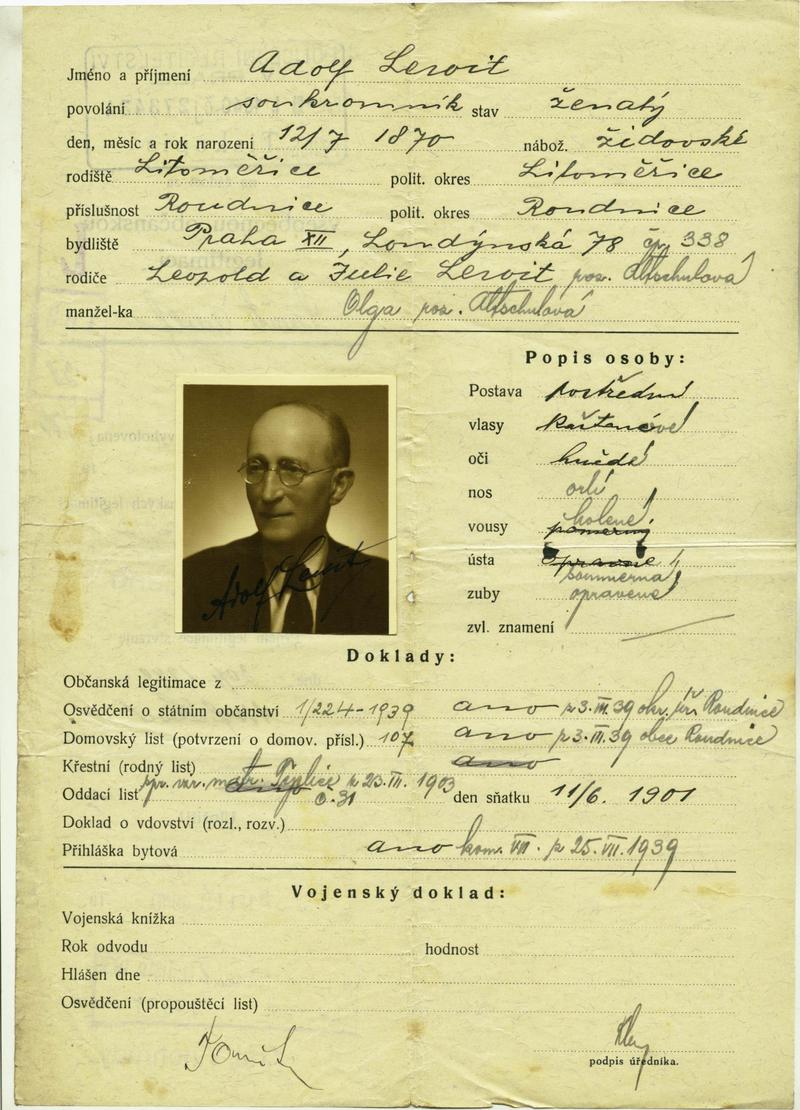 Jméno a příjmení Adolf Lewit
povolání soukromník stav ženatý
den, měsíc a rok narození 12/7 1870 nábož. židovské
rodiště Litoměřice polit. okres Litoměřice
příslušnost Roudnice polit. okres Roudnice
bydliště Praha XII, Londýnská 78 čp. 338
rodiče Leopold a Julie Lewit roz. Altschulová
manžel-ka Olga roz. Altschulová
Popis osoby:
Postava prostřední
vlasy kaštanové
oči hnědé
nos orlí
vousy holené
ústa souměrná
zuby opravené
zvl. znamení
Adolf Lewit
Doklady:
Občanská legitimace z
Osvědčení o státním občanství 1/224-1939 ano z 3.III.39 okr. úř. Roudnice
Domovský list (potvrzení o domov. přísl.) 107 ano z 3.III.39 obce Roudnice
Křestní (rodný list) ano
Oddací list matr. Teplice z 23.III.1903 č.31 den sňatku 11/6. 1901
Doklad o vdovství (rozl., rozv.)
Přihláška bytová ano kom. VIII. z 25.VII.1939
Vojenský doklad:
Vojenská knížka
Rok odvodu hodnost
Hlášen dne
Osvědčení (propouštěcí list)
podpis úředníka.